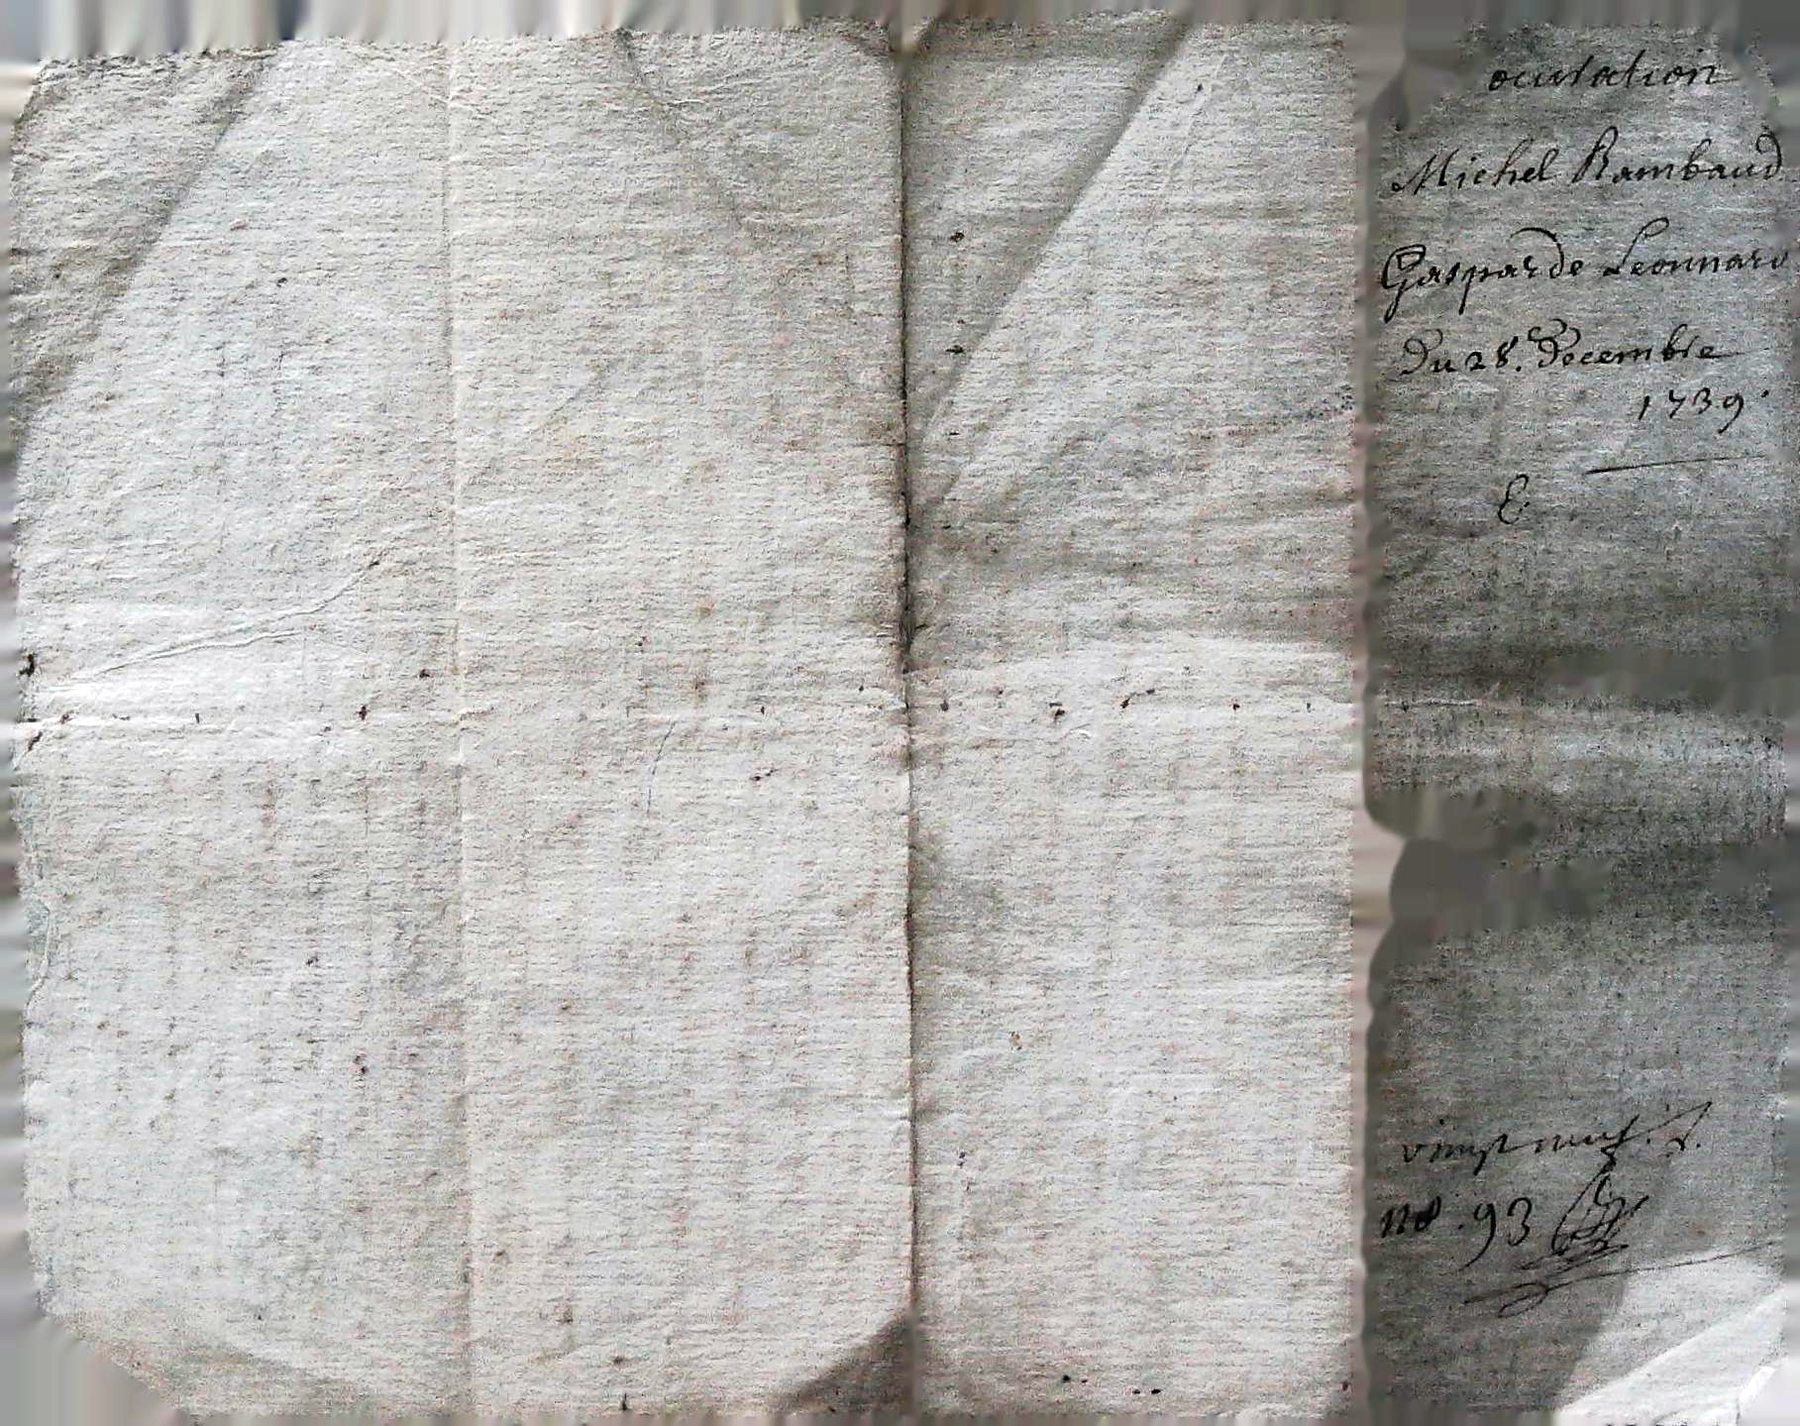 ocuration
Michel Rambaud
Gasparde Leonnard
Du 28. Decembre
1739.
E
vingt neuf. s.
no. 93